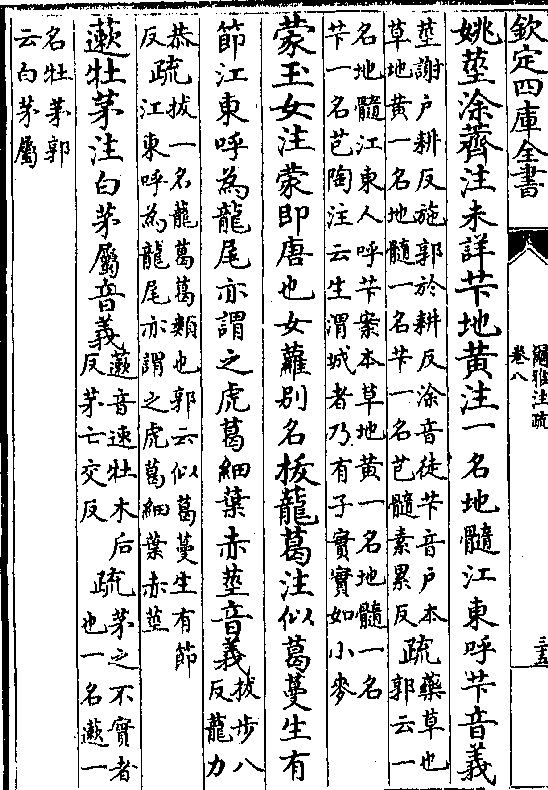 欽定四庫全書
爾雅注疏
卷八
三五
姚莖涂薺注未詳芐地黃注一名地髓江東呼芐音義
莖謝户耕反施郭於耕反涂音徒芐音户本
草地黃一名地髓一名芐一名芑髓素累反
疏
藥草也
郭云一
名地髓江東人呼芐案本草地黃一名地髓一名
芐一名芑陶注云生渭城者乃有子實實如小麥
蒙玉女注蒙即唐也女蘿别名拔龍葛注似葛蔓生有
節江東呼為龍尾亦謂之虎葛細葉赤莖音義
拔步八
反龍力
恭
反
疏
拔一名龍葛葛類也郭云似葛蔓生有節
江東呼為龍尾亦謂之虎葛細葉赤莖
藗牡茅注白茅屬音義
藗音速牡木后
反茅亡交反
疏
茅之不實者
也一名藗一
名牡茅郭
云白茅屬